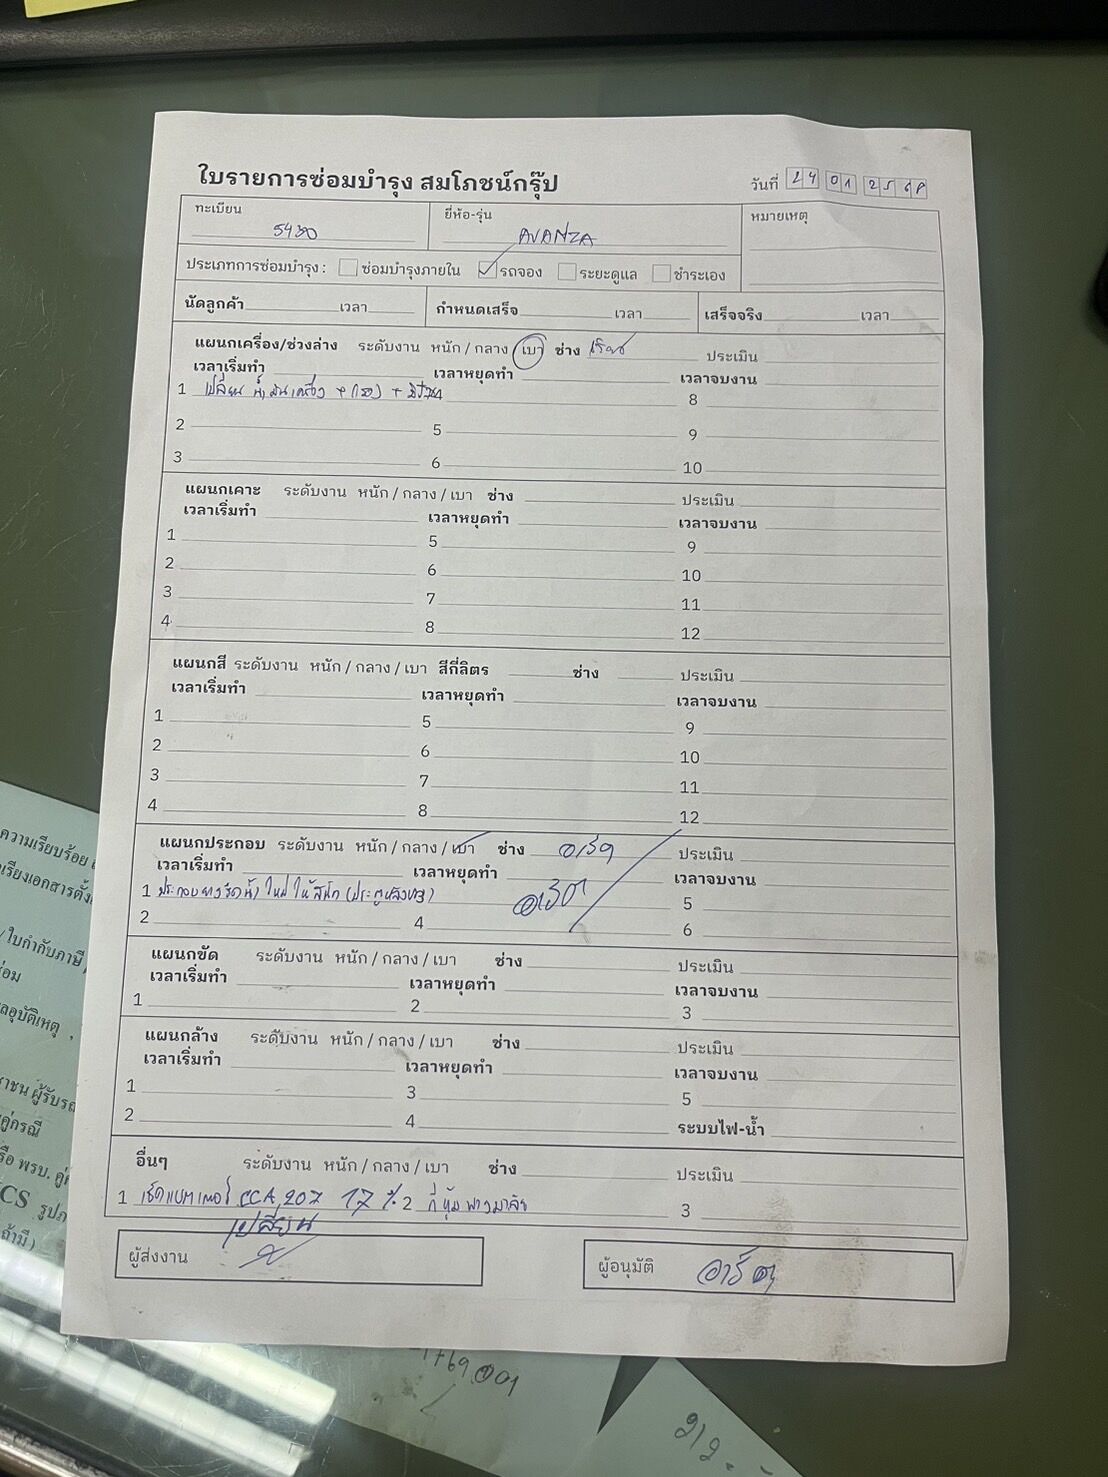 ใบรายการซ่อมบำรุง สมโภชน์กรุ๊ป
วันที่ 24 01 2568
ทะเบียน 5430
ยี่ห้อ-รุ่น AVANZA
หมายเหตุ
ประเภทการซ่อมบำรุง : ซ่อมบำรุงภายใน รถจอง ระยะดูแล ชำระเอง
นัดลูกค้า เวลา กำหนดเสร็จ เวลา เสร็จจริง เวลา
แผนกเครื่อง/ช่วงล่าง ระดับงาน หนัก / กลาง เบา ช่าง ประเมิน
เวลาเริ่มทำ เวลาหยุดทำ เวลาจบงาน
1 เปลี่ยน น้ำมันเครื่อง + + 8
2 5 9
3 6 10
แผนกเคาะ ระดับงาน หนัก / กลาง / เบา ช่าง ประเมิน
เวลาเริ่มทำ เวลาหยุดทำ เวลาจบงาน
1 5 9
2 6 10
3 7 11
4 8 12
แผนกสี ระดับงาน หนัก / กลาง / เบา สีกี่ลิตร ช่าง ประเมิน
เวลาเริ่มทำ เวลาหยุดทำ เวลาจบงาน
1 5 9
2 6 10
3 7 11
4 8 12
แผนกประกอบ ระดับงาน หนัก / กลาง / เบา ช่าง ประเมิน
เวลาเริ่มทำ เวลาหยุดทำ เวลาจบงาน
1 ประกอบยางรีดน้ำ ใหม่ ให้สนิท 5
2 4 6
แผนกขัด ระดับงาน หนัก / กลาง / เบา ช่าง ประเมิน
เวลาเริ่มทำ เวลาหยุดทำ เวลาจบงาน
1 2 3
แผนกล้าง ระดับงาน หนัก / กลาง / เบา ช่าง ประเมิน
เวลาเริ่มทำ เวลาหยุดทำ เวลาจบงาน
1 3 5
2 4 ระบบไฟ-น้ำ
อื่นๆ ระดับงาน หนัก / กลาง / เบา ช่าง ประเมิน
1 เช็คแบตเตอรี่ CCA 207 17 % 2 ที่หุ้มพวงมาลัย 3
เปลี่ยน
ผู้ส่งงาน
ผู้อนุมัติ
ความเรียบร้อย
ใบกำกับภาษี
คู่กรณี
พรบ.